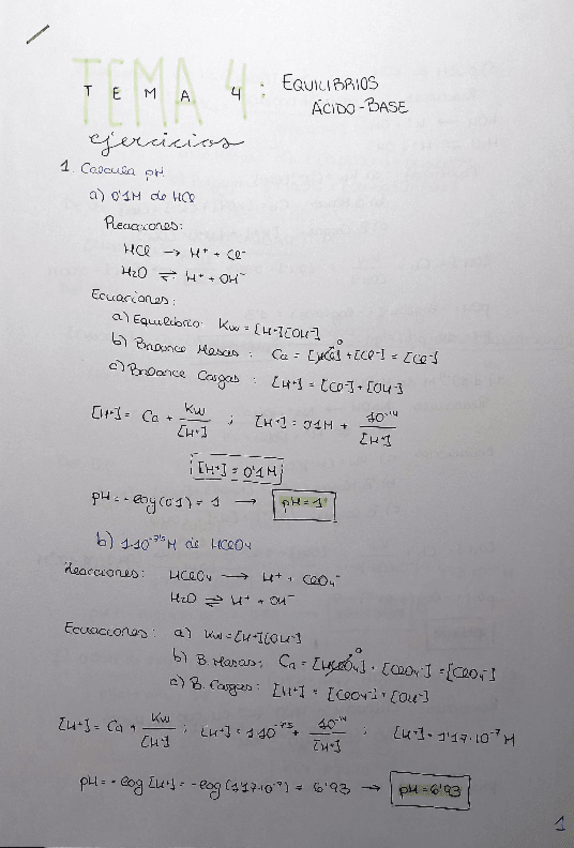 TEMA 4: EQUILIBRIOS
ÁCIDO-BASE
ejercicios
1. Calcula pH
a) 0'1M de HCl
Reacciones:
HCl → H⁺ + Cl⁻
H₂O ⇌ H⁺ + OH⁻
Ecuaciones:
a) Equilibrio: Kw = [H⁺][OH⁻]
b) Balance Masas: Ca = [HCl]⁰ + [Cl⁻] = [Cl⁻]
c) Balance Cargas: [H⁺] = [Cl⁻] + [OH⁻]
[H⁺] = Ca + Kw/[H⁺] ; [H⁺] = 0'1M + 10⁻¹⁴/[H⁺]
[H⁺] = 0'1M
pH = -log(0'1) = 1 → pH = 1
b) 1·10⁻⁷'⁵M de HClO₄
Reacciones: HClO₄ → H⁺ + ClO₄⁻
H₂O ⇌ H⁺ + OH⁻
Ecuaciones: a) Kw = [H⁺][OH⁻]
b) B. Masas: Ca = [HClO₄]⁰ + [ClO₄⁻] = [ClO₄⁻]
c) B. Cargas: [H⁺] = [ClO₄⁻] + [OH⁻]
[H⁺] = Ca + Kw/[H⁺] ; [H⁺] = 1·10⁻⁷'⁵ + 10⁻¹⁴/[H⁺] ; [H⁺] = 1'17·10⁻⁷ M
pH = -log [H⁺] = -log (1'17·10⁻⁷) = 6'93 → pH = 6'93
1